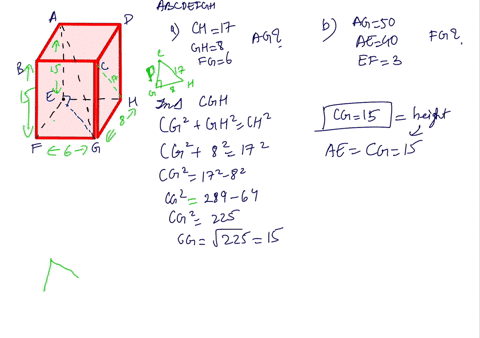 ABCDEFGH
a) CH=17
GH=8
FG=6
AG?
b) AG=50
AE=40
EF=3
FG?
A
D
B
C
15
17
15
E
H
8
F
←6→
G
C
17
G
8
H
In Δ CGH
CG²+GH²=CH²
CG²+8²=17²
CG²=17²-8²
CG²=289-64
CG²=225
CG=√225=15
CG=15 = height
AE=CG=15